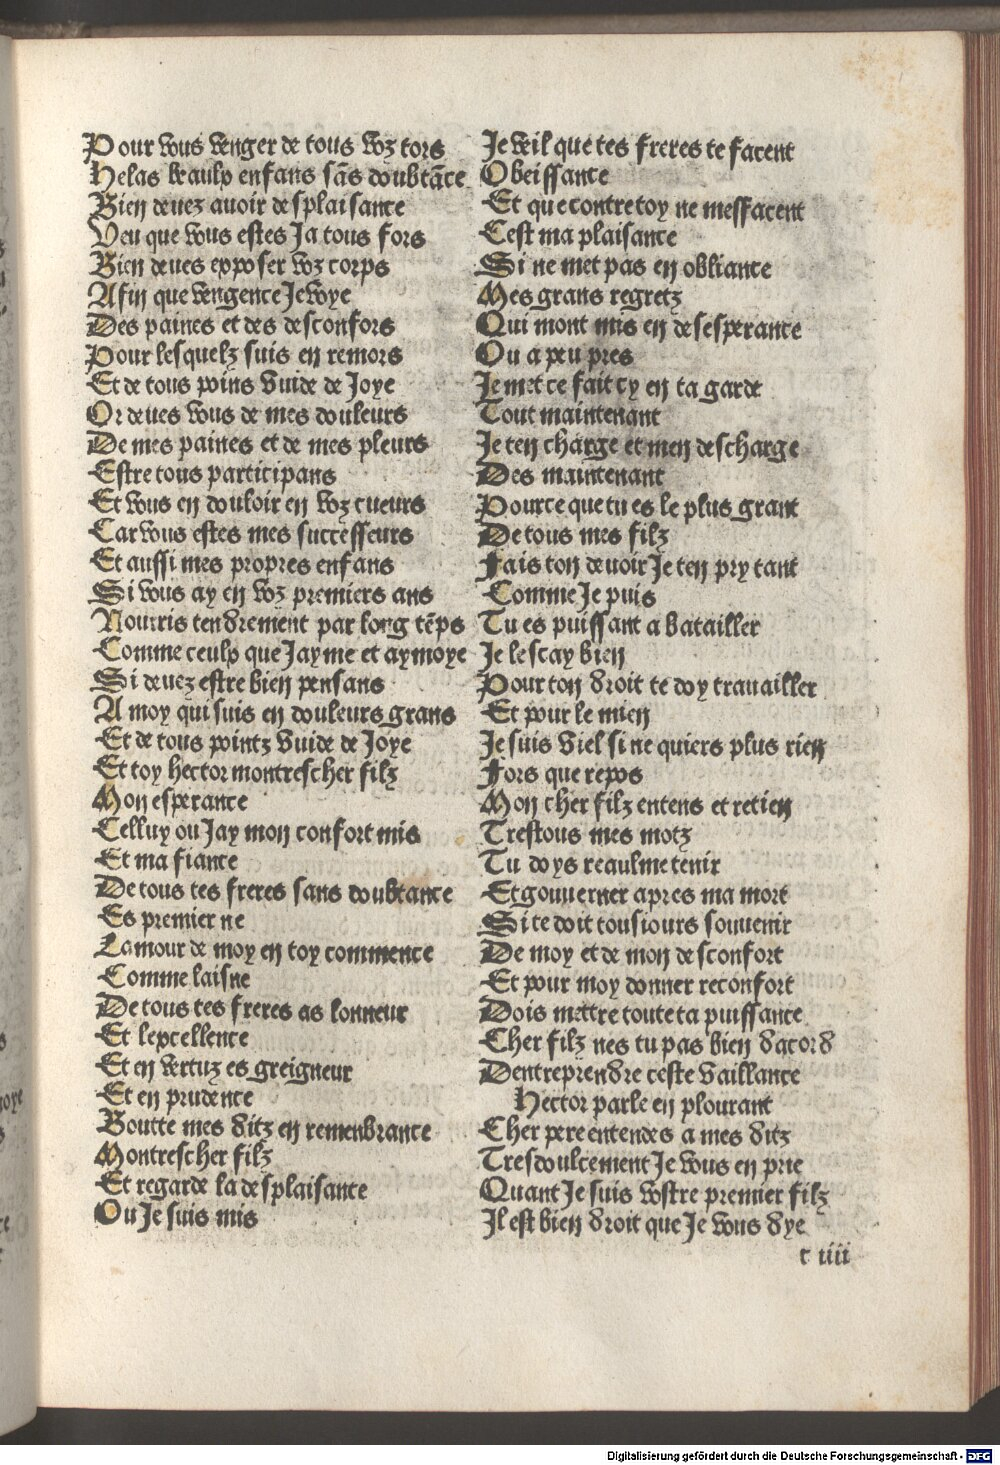 Pour vous venger de tous voz tors
Helas beaulx enfans sãs doubtãce
Bien deuez auoir desplaisance
Veu que vous estes Ja tous fors
Bien deues exposer voz corps
Afin que vengence Je voye
Des paines et des desconfors
Pour lesquelz suis en remors
Et de tous poins vuide de Joye
Or deues vous de mes douleurs
De mes paines et de mes pleurs
Estre tous participans
Et vous en douloir en voz cueurs
Car vous estes mes successeurs
Et aussi mes propres enfans
Si vous ay en voz premiers ans
Nourris tendrement par long tẽps
Comme ceulx que Jayme et aymoye
Si deuez estre bien pensans
A moy qui suis en douleurs grans
Et de tous pointz vuide de Joye
Et toy hector montrescher filz
Mon esperance
Celluy ou Jay mon confort mis
Et ma fiance
De tous tes freres sans doubtance
Es premier ne
Lamour de moy en toy commence
Comme laisne
De tous tes freres as lonneur
Et lexcellence
Et en vertuz es greigneur
Et en prudence
Boutte mes ditz en remenbrance
Montrescher filz
Et regarde la desplaisance
Ou Je suis mis
Je veil que tes freres te facent
Obeissance
Et que contre toy ne meffacent
Cest ma plaisance
Si ne met pas en obliance
Mes grans regretz
Qui mont mis en desesperance
Ou a peu pres
Je met ce fait cy en ta garde
Tout maintenant
Je ten charge et men descharge
Des maintenant
Pource que tu es le plus grant
De tous mes filz
Fais ton deuoir Je ten pry tant
Comme Je puis
Tu es puissant a batailler
Je le scay bien
Pour ton droit te doy trauailler
Et pour le mien
Je suis viel si ne quiers plus rien
Fors que repos
Mon cher filz entens et retien
Trestous mes motz
Tu doys reaulme tenir
Et gouuerner apres ma mort
Si te doit tousiours souuenir
De moy et de mon desconfort
Et pour moy donner reconfort
Dois mettre toute ta puissance
Cher filz nes tu pas bien dacord
Dentreprendre ceste vaillance
Hector parle en plourant
Cher pere entendes a mes ditz
Tresdoulcement Je vous en prie
Quant Je suis vostre premier filz
Il est bien droit que Je vous dye
c iiii
Digitalisierung gefördert durch die Deutsche Forschungsgemeinschaft - DFG